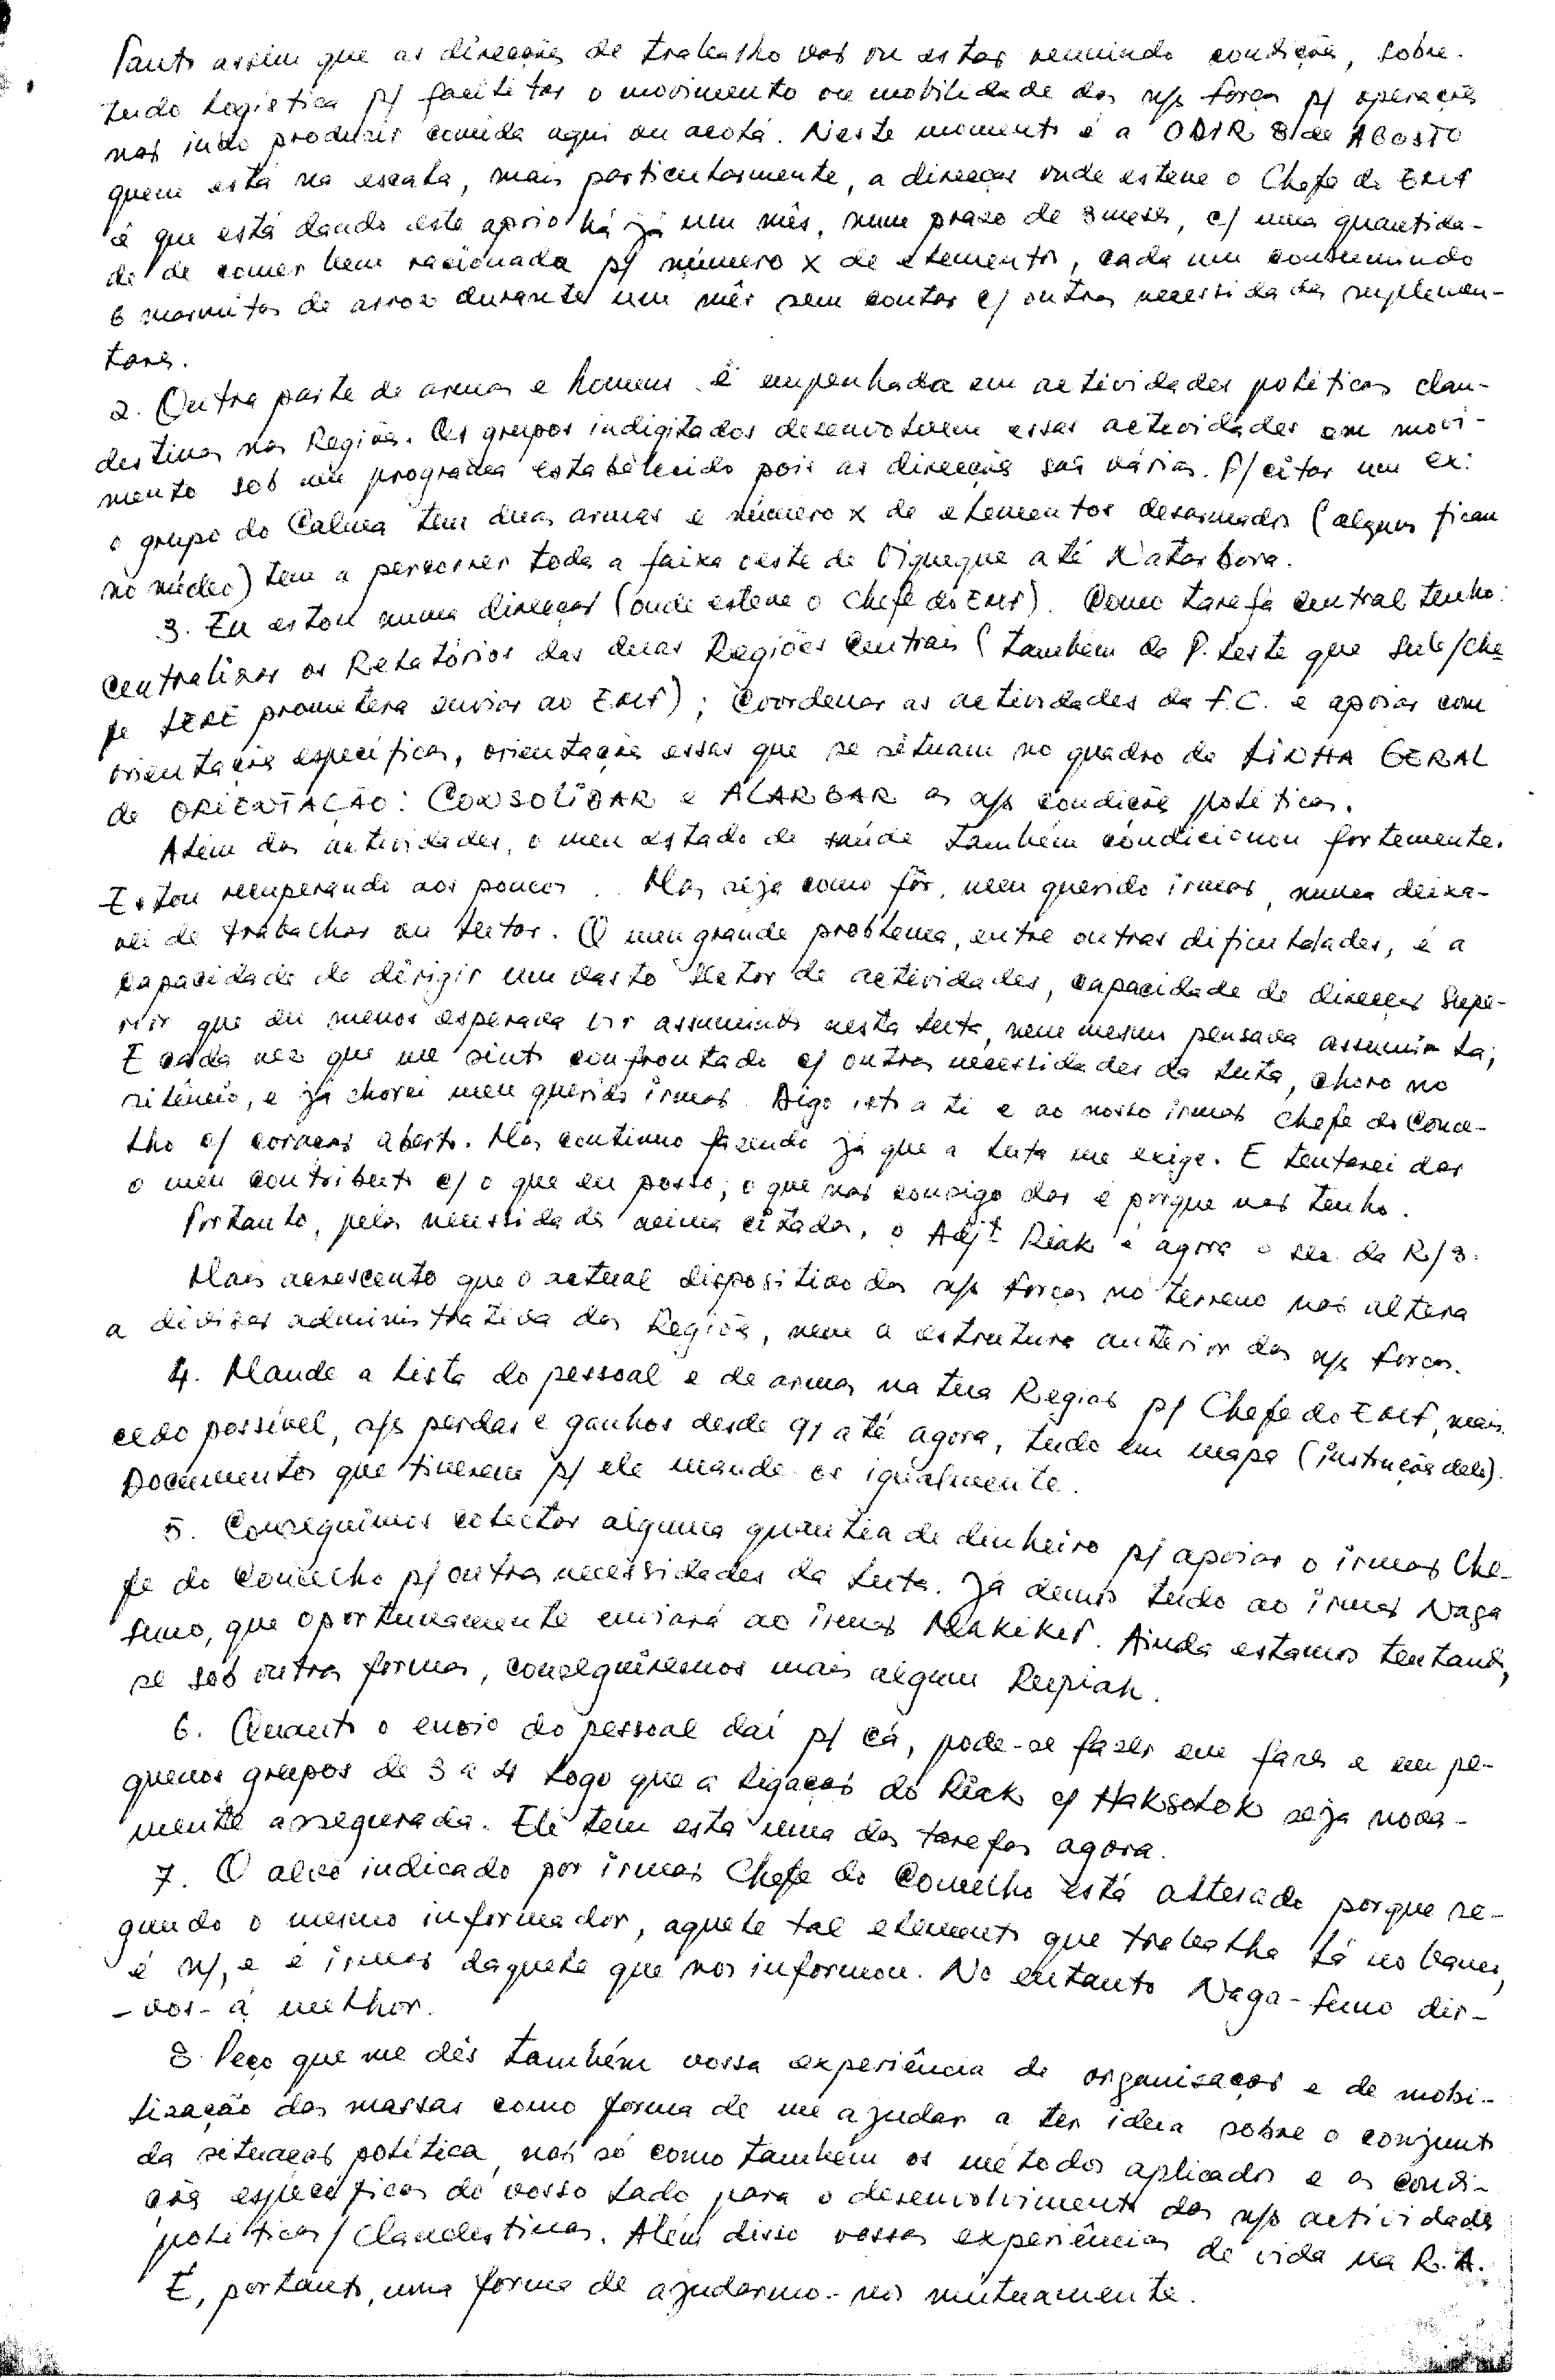 Tanto assim que as direcções de trabalho vão ou estão reunindo condições, sobre-
tudo logística p/ facilitar o movimento ou mobilidade das n/s forças p/ operações
não indo produzir comida aqui ou acolá. Neste momento é a ODIR 8 de AGOSTO
quem está na escala, mais particularmente, a direcção onde esteve o Chefe do EMF
é que está dando este apoio há já um mês, num prazo de 3 meses, c/ uma quantida-
de de comer bem racionada p/ número x de elementos, cada um consumindo
6 marmitas de arroz durante um mês sem contar c/ outras necessidades suplemen-
tares.
2. Outra parte de armas e homens é empenhada em actividades políticas clan-
destinas nas Regiões. Os grupos indigitados desenvolvem essas actividades em movi-
mento sob um programa estabelecido pois as direcções são várias. P/ citar um ex:
o grupo do Calma tem duas armas e número x de elementos desarmados (alguns ficam
no núcleo) tem a percorrer toda a faixa oeste de Viqueque até Natarbora.
3. Eu estou numa direcção (onde esteve o Chefe do EMF). Como tarefa central tenho:
Centralizar os Relatórios das duas Regiões Centrais (também da P. Leste que Sub/Che
fe LERE prometera enviar ao EMF); Coordenar as actividades da F.C. e apoiar com
orientações específicas, orientações essas que se situam no quadro da LINHA GERAL
de ORIENTAÇÃO: CONSOLIDAR e ALARGAR as n/s condições políticas.
Além das actividades, o meu estado de saúde também condicionou fortemente.
Estou recuperando aos poucos. Mas seja como fôr, meu querido irmão, nunca deixa-
rei de trabalhar ou lutar. O meu grande problema, entre outras dificuldades, é a
capacidade de dirigir um vasto sector de actividades, capacidade de direcção supe-
rior que eu menos esperava vir assumindo nesta luta, nem mesmo pensava assumi-la;
E cada vez que me sinto confrontado c/ outras necessidades da luta, choro no
silêncio, e já chorei meu querido irmão. Digo isto a ti e ao nosso irmão Chefe do Conce-
lho c/ coração aberto. Mas continuo fazendo já que a luta me exige. E tentarei dar
o meu contributo c/ o que eu posso; o que não consigo dar é porque não tenho.
Portanto, pelas necessidades acima citadas, o Adjt Riak é agora o sec. da R/3.
Mais acrescento que o actual dispositivo das n/s forças no terreno não altera
a divisão administrativa das Regiões, nem a estrutura anterior das n/s forças.
4. Mande a lista do pessoal e de armas na tua Região p/ Chefe do EMF, mais
cedo possível, n/s perdas e ganhos desde 91 até agora, tudo em mapa (instruções dele).
Documentos que tiverem p/ ele mande-os igualmente.
5. Conseguimos colectar alguma quantia de dinheiro p/ apoiar o irmão Che-
fe do Concelho p/ outras necessidades da luta. Já demos tudo ao irmão Naga
Sumo, que oportunamente enviará ao irmão Makikit. Ainda estamos tentando,
se sob outras formas, conseguiremos mais algum Rupiah.
6. Quanto o envio do pessoal daí p/ cá, pode-se fazer em fases e em pe-
quenos grupos de 3 a 4 logo que a ligação do Riak c/ Haksolok seja nova-
mente assegurada. Ele tem esta uma das tarefas agora.
7. O alvo indicado por irmão Chefe do Concelho está alterado porque se-
gundo o mesmo informador, aquele tal elemento que trabalha lá no banco,
é n/, e é irmão daquele que nos informou. No entanto Naga-Sumo dir-
-vos-á melhor.
8. Peço que me dês também vossa experiência de organização e de mobi-
lização das massas como forma de me ajudar a ter ideia sobre o conjunto
da situação política, não só como também os métodos aplicados e as condi-
ções específicas do vosso lado para o desenvolvimento das n/s actividades
políticas/Clandestinas. Além disso vossas experiências de vida na R.A.
É, portanto, uma forma de ajudarmo-nos mutuamente.